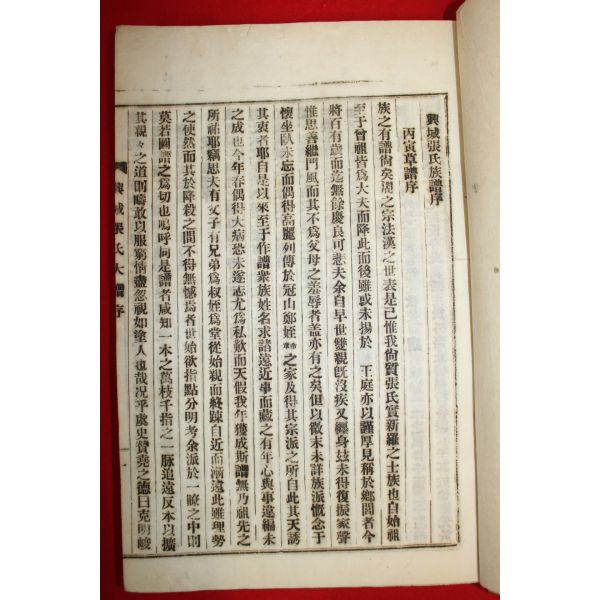 興城張氏族譜序
丙寅草譜序
族之有譜尙矣周之宗法漢之世表是已惟我尙質張氏實新羅之士族也自始祖
至于曾祖皆爲大夫而降此而後雖或未揚於 王庭亦以謹厚見稱於鄕閭者今
將百有歲而迄無餘慶良可悲夫余自早世雙親旣沒疾又纒身玆未得復振家聲
惟思善繼門風而其不爲父母之羞辱者盖亦有之矣但以微末未詳族派慨念于
懷坐臥未忘而偶得高麗列傳於冠山鄭姪 之家及得其宗派之所自此其天誘
其衷者耶自是以來至于作譜衆族姓名求諸遠近事而藏之有年心與事違編未
之成也今年春偶得大病恐未遂志尤爲私歎而天假我年獲成斯譜無乃祖先之
所祐耶竊思夫有父子有兄弟爲叔姪爲堂從始親而終踈自近而漸遠此雖理勢
之使然而其於降殺之間不得無憾焉者世始欲指點分明考余派於一瞭之中則
莫若圖譜之爲切也嗚呼同是譜者咸知一本之萬枝千指之一脈追遠反本以擴
其親々之道則疇敢以服窮情盡忽視如塗人也哉况乎虞史贊堯之德曰克明峻
興城張氏大譜序
一